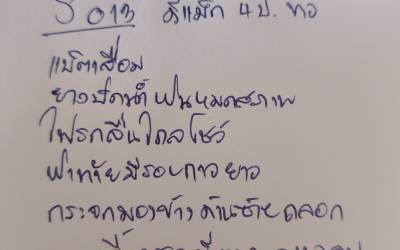 ปี 013 ดีแม็ก 4 ป. ทอง
แบตเสื่อม
ยางปัดน้ำฝนหมดสภาพ
ไฟรถลื่นไถลโชว์
ฝาท้ายมีรอยกาวยาว
กระจกมองข้างด้านซ้ายถลอก